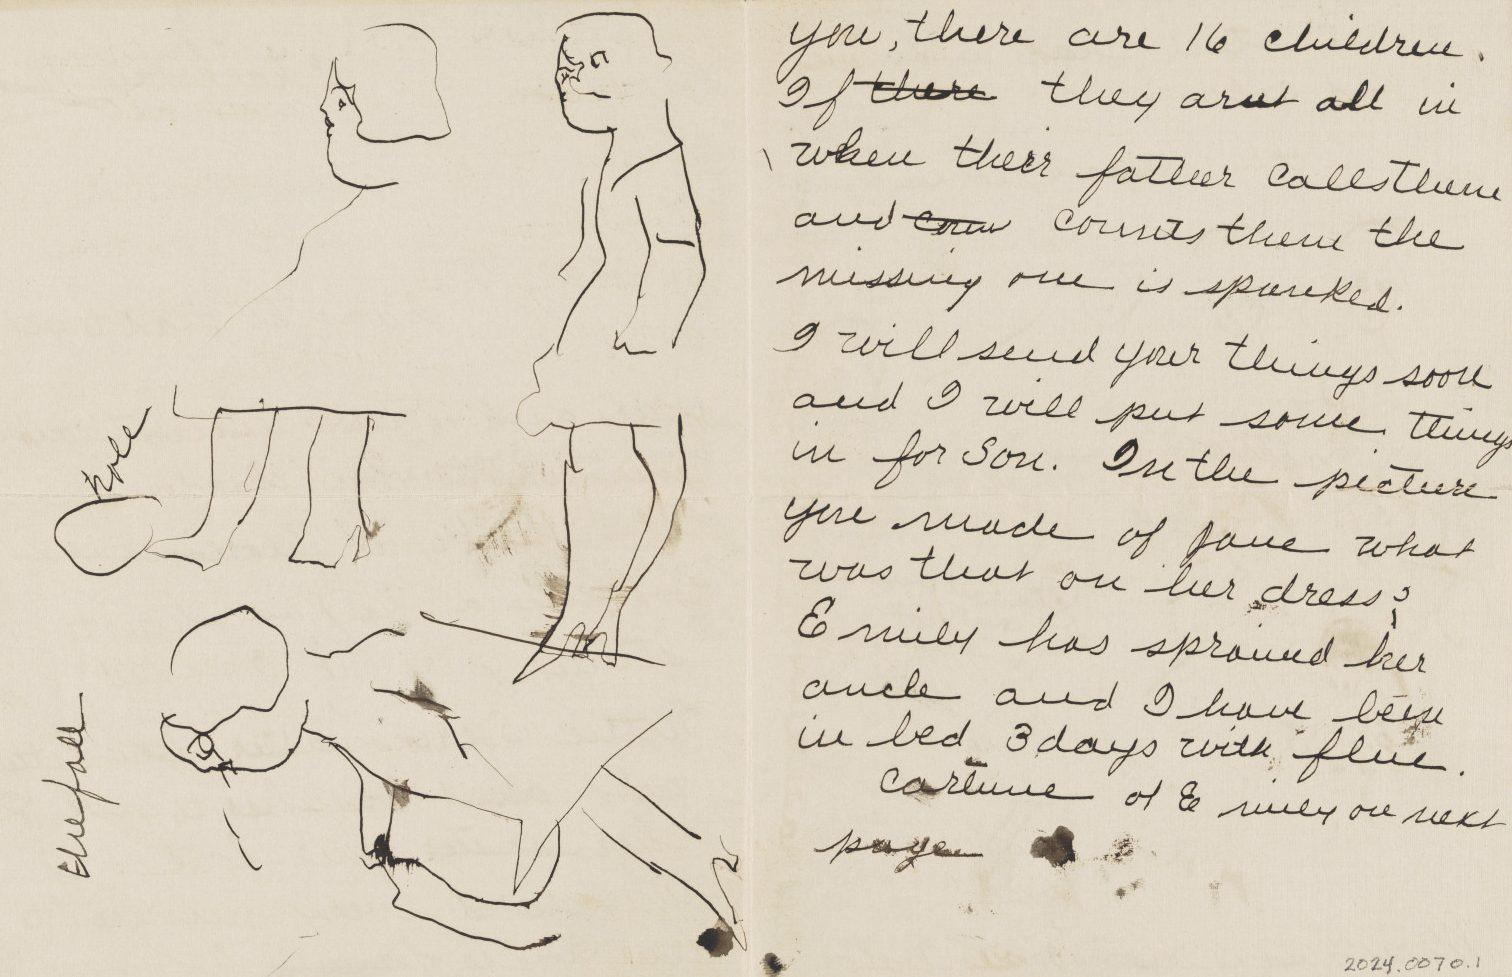 hole
the fall
you, there are 16 children.
If there they arent all in
when theirr father calls them
and coun counts them the
missing one is spanked.
I will send your things soon
and I will put some things
in for Son. In the picture
you made of Jane what
was that on her dress?
Emily has sprained her
ancle and I have been
in bed 3 days with flue.
cartune of Emily on next
page
2024.0070.1